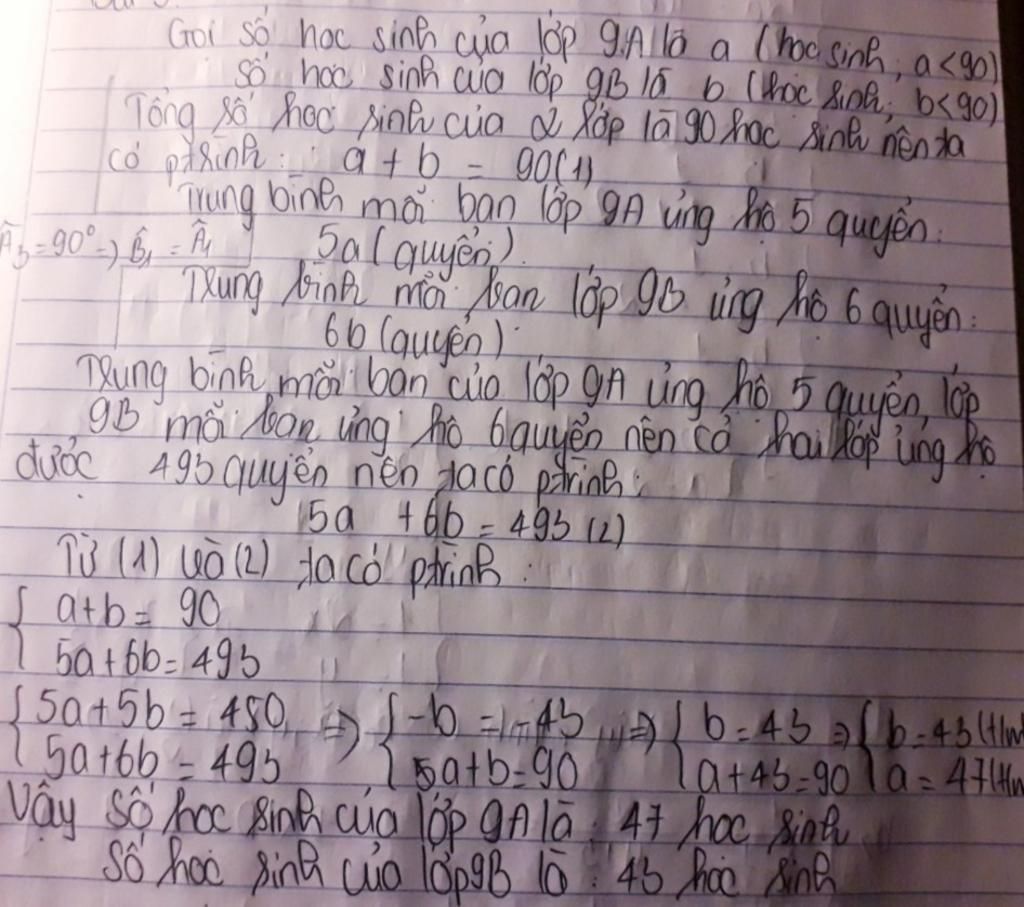 Gọi số học sinh của lớp 9A là a (học sinh, a<90)
số học sinh của lớp 9B là b (học sinh; b<90)
Tổng số học sinh của 2 lớp là 90 học sinh nên ta
có ptrình: a + b = 90 (1)
Trung bình mỗi bạn lớp 9A ủng hộ 5 quyển:
Â₃ = 90° => B̂₁ = Â₁ 5a (quyển).
Trung bình mỗi bạn lớp 9B ủng hộ 6 quyển:
6b (quyển)
Trung bình mỗi bạn của lớp 9A ủng hộ 5 quyển, lớp
9B mỗi bạn ủng hộ 6 quyển nên cả hai lớp ủng hộ
được 493 quyển nên ta có ptrình:
5a + 6b = 493 (2)
Từ (1) và (2) ta có ptrình:
{ a+b = 90
5a+6b = 493
{ 5a+5b = 450 => { -b = -43 => { b = 43 => { b = 43 (tm
5a+6b = 493 5a+b=90 a+43=90 a = 47 (tm
Vậy số học sinh của lớp 9A là: 47 học sinh
Số học sinh của lớp 9B là: 43 học sinh